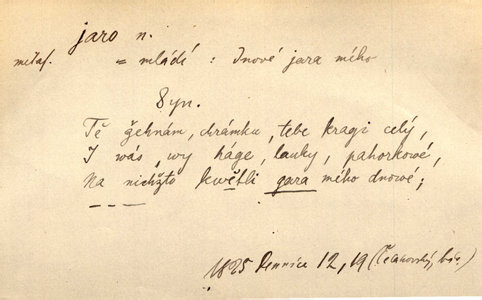 jaro n.
metaf. = mládí : Dnové jara mého
Syn.
Tě žehnám, chrámku, tebe kragi celý,
I wás, wy háge, lauky, pahorkowé,
Na nichžto kwětli gara mého dnowé;
— — —
1825 Dennice 12, 19 (Čelakovský, bás.)